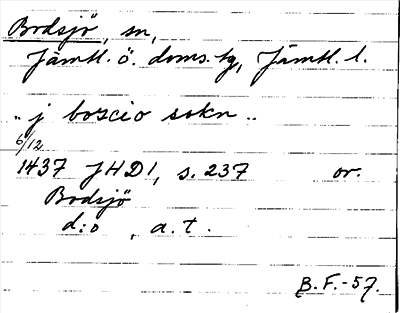 Bodsjö, sn,
Jämtl. ö. doms.tg, Jämtl. l.
„ j boxcio sokn „
6/12
1437 JHD 1, s. 237 or.
Bodsjö
d:o , a. t.
B.F.-57.